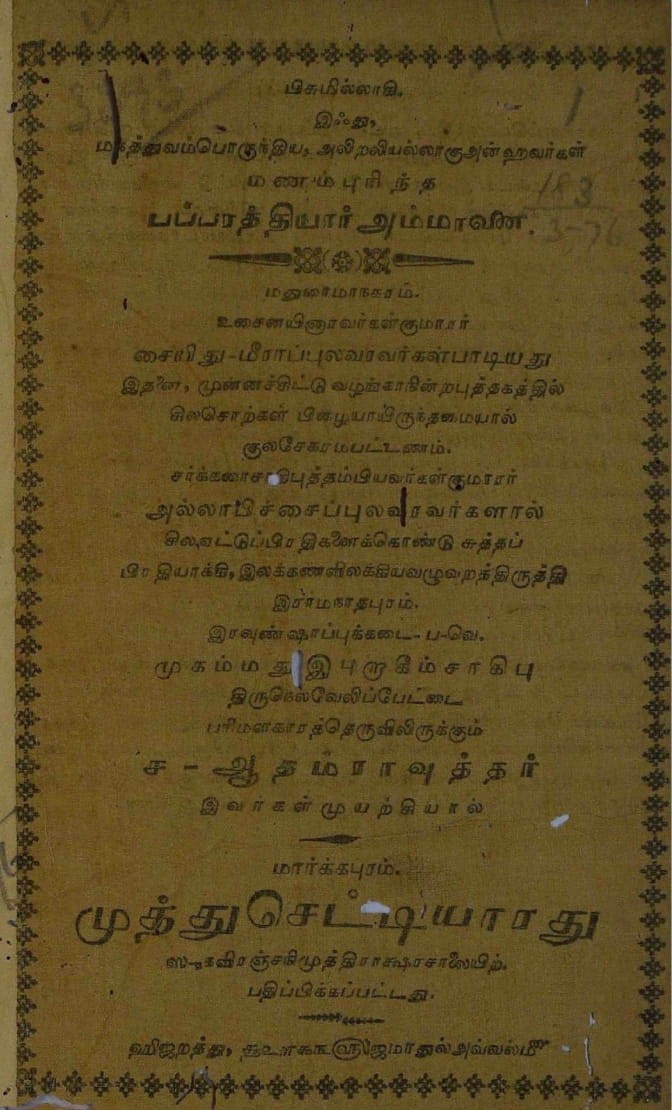 பிசுமில்லாகி.
இஃது,
மகத்துவம்பொருந்திய, அலிறலியல்லாகுஅன்ஹவர்கள்
மணம்புரிந்த
பப்பரத்தியார் அம்மாவண.
மதுரைமாநகரம்.
உசைனயினாரவர்கள்குமாரர்
சையிது-மீராப்புலவரவர்கள்பாடியது
இதனை, முன்னச்சிட்டு வழங்காநின்றபுத்தகத்தில்
சிலசொற்கள் பிழையாயிருந்தமையால்
குலசேகரமபட்டணம்.
புத்தம்பியவர்கள்குமாரர்
அல்லாபிச்சைப்புலவரவர்களால்
சிலஏட்டுப்பிரதிகளைக்கொண்டு சுத்தப்
பிரதியாக்கி, இலக்கணவிலக்கியவழுவறத்திருத்தி
இராமநாதபுரம்.
இரவுண்ஷாப்புக்கடை-ப-வெ.
முகம்மதுஇபுறாகீம்சாகிபு
திருநெல்வேலிப்பேட்டை
பரிமளகாரத்தெருவிலிருக்கும்
ச-ஆதமராவுத்தர்
இவர்கள்முயற்கியால்
மார்க்கபுரம்.
முத்துசெட்டியாரது
முத்திராக்ஷரசாலையிற்.
பதிப்பிக்கப்பட்டது.
ஹிஜறத்து, ஜமாதுல்அவ்வல்மீ
3873
1
183
3-76